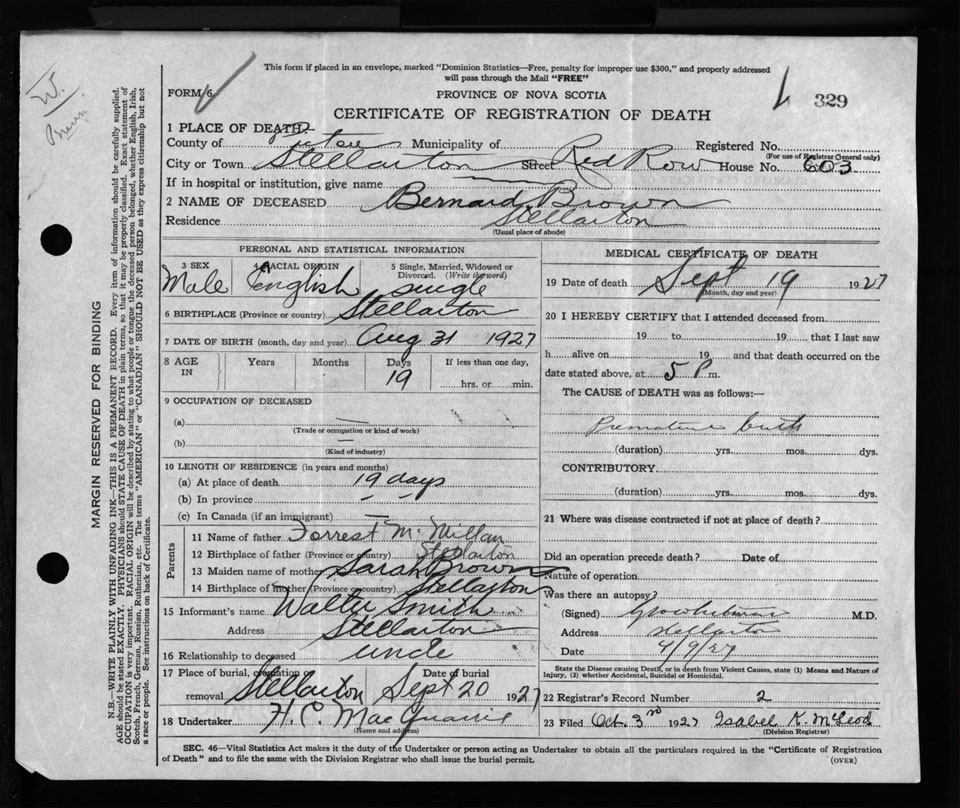 This form if placed in an envelope, marked "Dominion Statistics—Free, penalty for improper use $300," and properly addressed
will pass through the Mail "FREE"
FORM 6
PROVINCE OF NOVA SCOTIA
329
CERTIFICATE OF REGISTRATION OF DEATH
1 PLACE OF DEATH:—
County of Pictou Municipality of Registered No.
(For use of Registrar General only)
City or Town Stellarton Street Red Row House No. 603
If in hospital or institution, give name
2 NAME OF DECEASED Bernard Brown
Residence Stellarton
(Usual place of abode)
PERSONAL AND STATISTICAL INFORMATION
3 SEX 4 RACIAL ORIGIN 5 Single, Married, Widowed or Divorced. (Write the word)
Male English single
6 BIRTHPLACE (Province or country) Stellarton
7 DATE OF BIRTH (month, day and year) Aug 31 1927
8 AGE IN Years Months Days If less than one day,
19 hrs. or min.
9 OCCUPATION OF DECEASED
(a) —
(Trade or occupation or kind of work)
(b) —
(Kind of industry)
10 LENGTH OF RESIDENCE (in years and months)
(a) At place of death 19 days
(b) In province – –
(c) In Canada (if an immigrant) —
Parents
11 Name of father Forrest McMillan
12 Birthplace of father (Province or country) Stellarton
13 Maiden name of mother Sarah Brown
14 Birthplace of mother (Province or country) Stellarton
15 Informant's name Walter Smith
Address Stellarton
16 Relationship to deceased uncle
17 Place of burial, cremation or removal Stellarton Date of burial Sept 20 1927
18 Undertaker H. C. MacQuarrie
(Name and address)
MEDICAL CERTIFICATE OF DEATH
19 Date of death Sept 19 1927
(Month, day and year)
20 I HEREBY CERTIFY that I attended deceased from
19 to 19 that I last saw
h alive on 19 and that death occurred on the
date stated above, at 5 P m.
The CAUSE of DEATH was as follows:—
Premature birth
(duration) yrs. mos. dys.
CONTRIBUTORY
(duration) yrs. mos. dys.
21 Where was disease contracted if not at place of death?
Did an operation precede death? Date of
Nature of operation
Was there an autopsy?
(Signed) M.D.
Address Stellarton
Date 9/27
State the Disease causing Death, or in death from Violent Causes, state (1) Means and Nature of
Injury, (2) whether Accidental, Suicidal or Homicidal.
22 Registrar's Record Number 2
23 Filed Oct. 3rd 1927 Isabel K. McLeod
(Division Registrar)
SEC. 46—Vital Statistics Act makes it the duty of the Undertaker or person acting as Undertaker to obtain all the particulars required in the "Certificate of Registration
of Death" and to file the same with the Division Registrar who shall issue the burial permit.
(OVER)
MARGIN RESERVED FOR BINDING
N.B.—WRITE PLAINLY WITH UNFADING INK—THIS IS A PERMANENT RECORD. Every item of information should be carefully supplied.
AGE should be stated EXACTLY. PHYSICIANS should STATE CAUSE OF DEATH in plain terms, so that it may be properly classified. Exact statement of
OCCUPATION is very important. RACIAL ORIGIN will be described by stating to what people or tongue the deceased person belonged, whether English, Irish,
Scotch, French, German, Russian, Ruthenian, etc. The terms "AMERICAN" or "CANADIAN" SHOULD NOT BE USED as they express citizenship but not
a race or people. See instructions on back of Certificate.